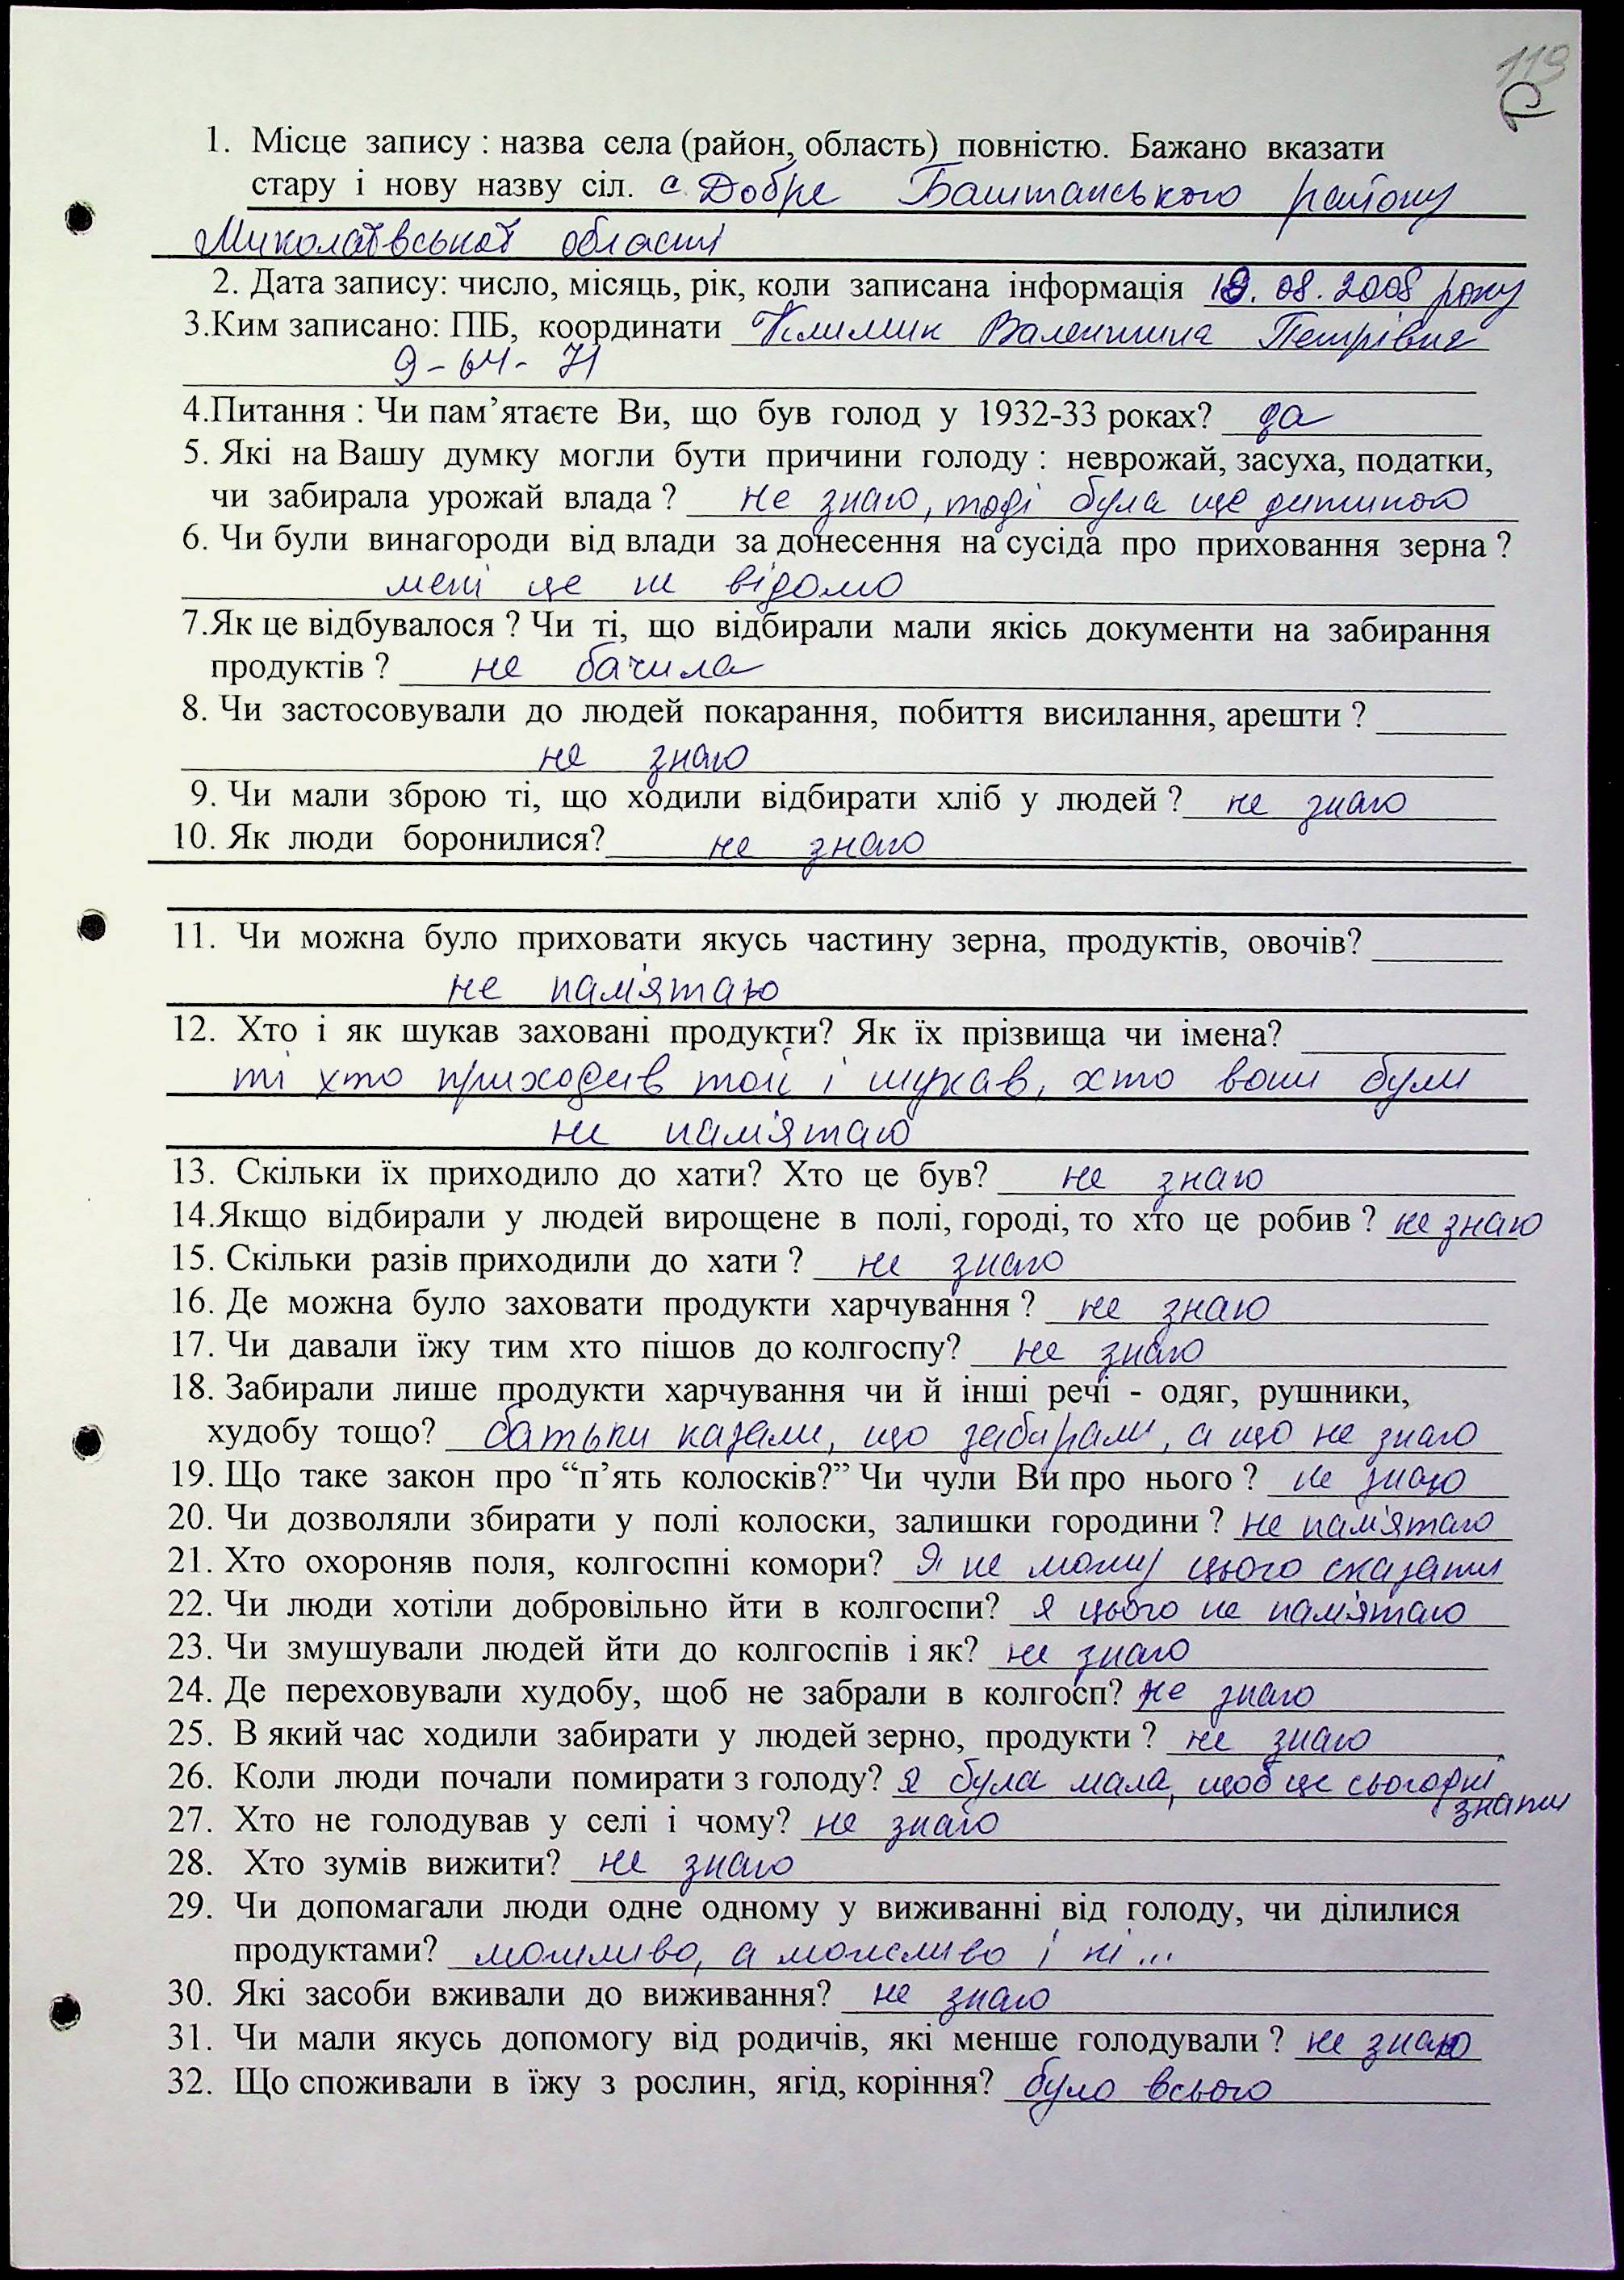 119
1. Місце запису : назва села (район, область) повністю. Бажано вказати
стару і нову назву сіл. с. Добре Баштанського району
Миколаївської області
2. Дата запису: число, місяць, рік, коли записана інформація 18. 08. 2008 року
3.Ким записано: ПІБ, координати Климик Валентина Петрівна
9-64-71
4.Питання : Чи пам’ятаєте Ви, що був голод у 1932-33 роках? да
5. Які на Вашу думку могли бути причини голоду : неврожай, засуха, податки,
чи забирала урожай влада ? не знаю, тоді була ще дитиною
6. Чи були винагороди від влади за донесення на сусіда про приховання зерна ?
мені це не відомо
7.Як це відбувалося ? Чи ті, що відбирали мали якісь документи на забирання
продуктів ? не бачила
8. Чи застосовували до людей покарання, побиття висилання, арешти ?
не знаю
9. Чи мали зброю ті, що ходили відбирати хліб у людей ? не знаю
10. Як люди боронилися? не знаю
11. Чи можна було приховати якусь частину зерна, продуктів, овочів?
не пам'ятаю
12. Хто і як шукав заховані продукти? Як їх прізвища чи імена?
ті хто приходив той і шукав, хто вони були
не пам'ятаю
13. Скільки їх приходило до хати? Хто це був? не знаю
14.Якщо відбирали у людей вирощене в полі, городі, то хто це робив ? не знаю
15. Скільки разів приходили до хати ? не знаю
16. Де можна було заховати продукти харчування ? не знаю
17. Чи давали їжу тим хто пішов до колгоспу? не знаю
18. Забирали лише продукти харчування чи й інші речі - одяг, рушники,
худобу тощо? батьки казали, що забирали, а що не знаю
19. Що таке закон про “п’ять колосків?” Чи чули Ви про нього ? не знаю
20. Чи дозволяли збирати у полі колоски, залишки городини ? не пам'ятаю
21. Хто охороняв поля, колгоспні комори? Я не можу цього сказати
22. Чи люди хотіли добровільно йти в колгоспи? я цього не пам'ятаю
23. Чи змушували людей йти до колгоспів і як? не знаю
24. Де переховували худобу, щоб не забрали в колгосп? не знаю
25. В який час ходили забирати у людей зерно, продукти ? не знаю
26. Коли люди почали помирати з голоду? я була мала, щоб це сьогодні
знати
27. Хто не голодував у селі і чому? не знаю
28. Хто зумів вижити? не знаю
29. Чи допомагали люди одне одному у виживанні від голоду, чи ділилися
продуктами? можливо, а можливо і ні...
30. Які засоби вживали до виживання? не знаю
31. Чи мали якусь допомогу від родичів, які менше голодували ? не знаю
32. Що споживали в їжу з рослин, ягід, коріння? було всього